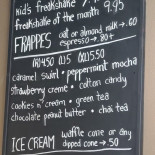 kid's freakshake 7.
freakshake of the month 9.95
FRAPPES oat or almond milk → .60
espresso → .80+
caramel swirl • peppermint mocha
strawberry creme • cotton candy
cookies n' cream • green tea
chocolate peanut butter • chai tea
ICE CREAM waffle cone or any
dipped cone → .50